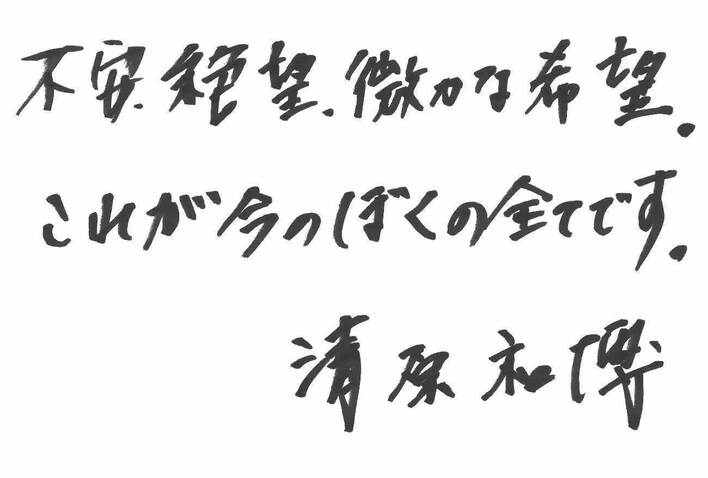 不安、絶望、微かな希望。
これが今のぼくの全てです。
清原和博